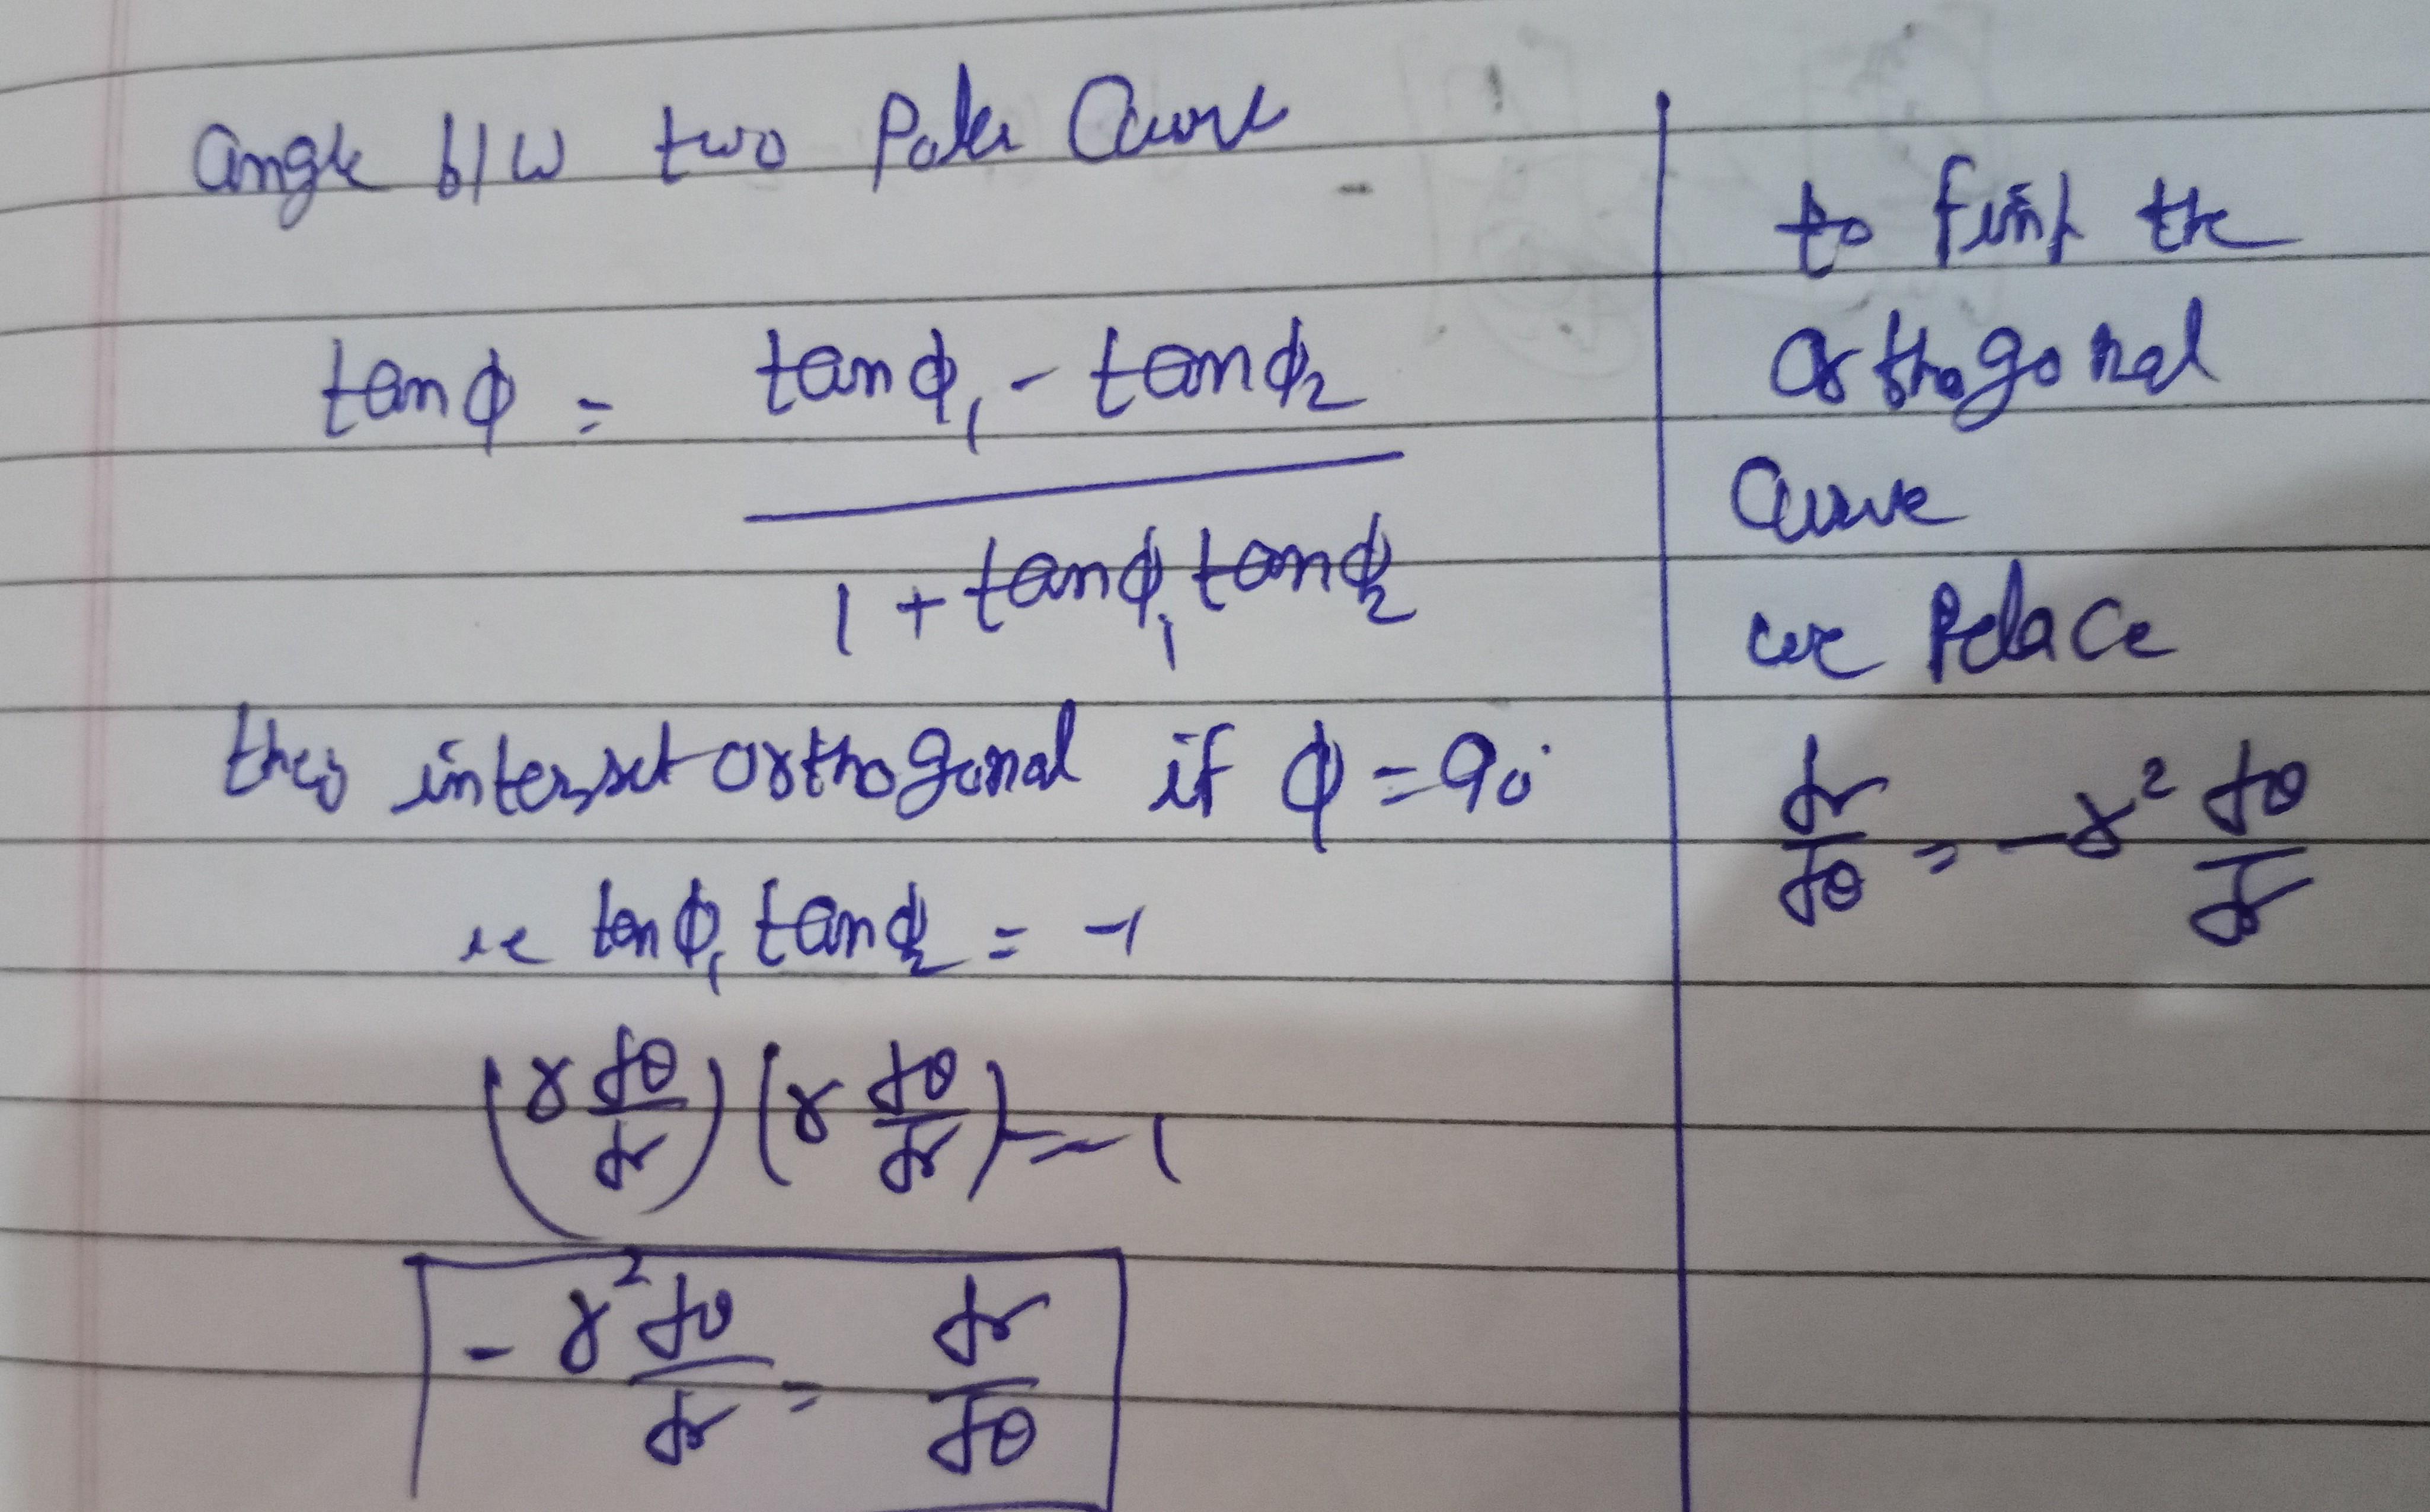 angle b/w two Polar Curve
tanϕ = (tanϕ₁ - tanϕ₂) / (1 + tanϕ₁ tanϕ₂)
intersect orthogonal if ϕ = 90°
ie tanϕ₁ tanϕ₂ = -1
(r dθ/dr) (r dθ/dr) = -1
- r² dθ/dr = dr/dθ
to find the
Orthogonal
Curve
we Pelace
dr/dθ = -r² dθ/dr